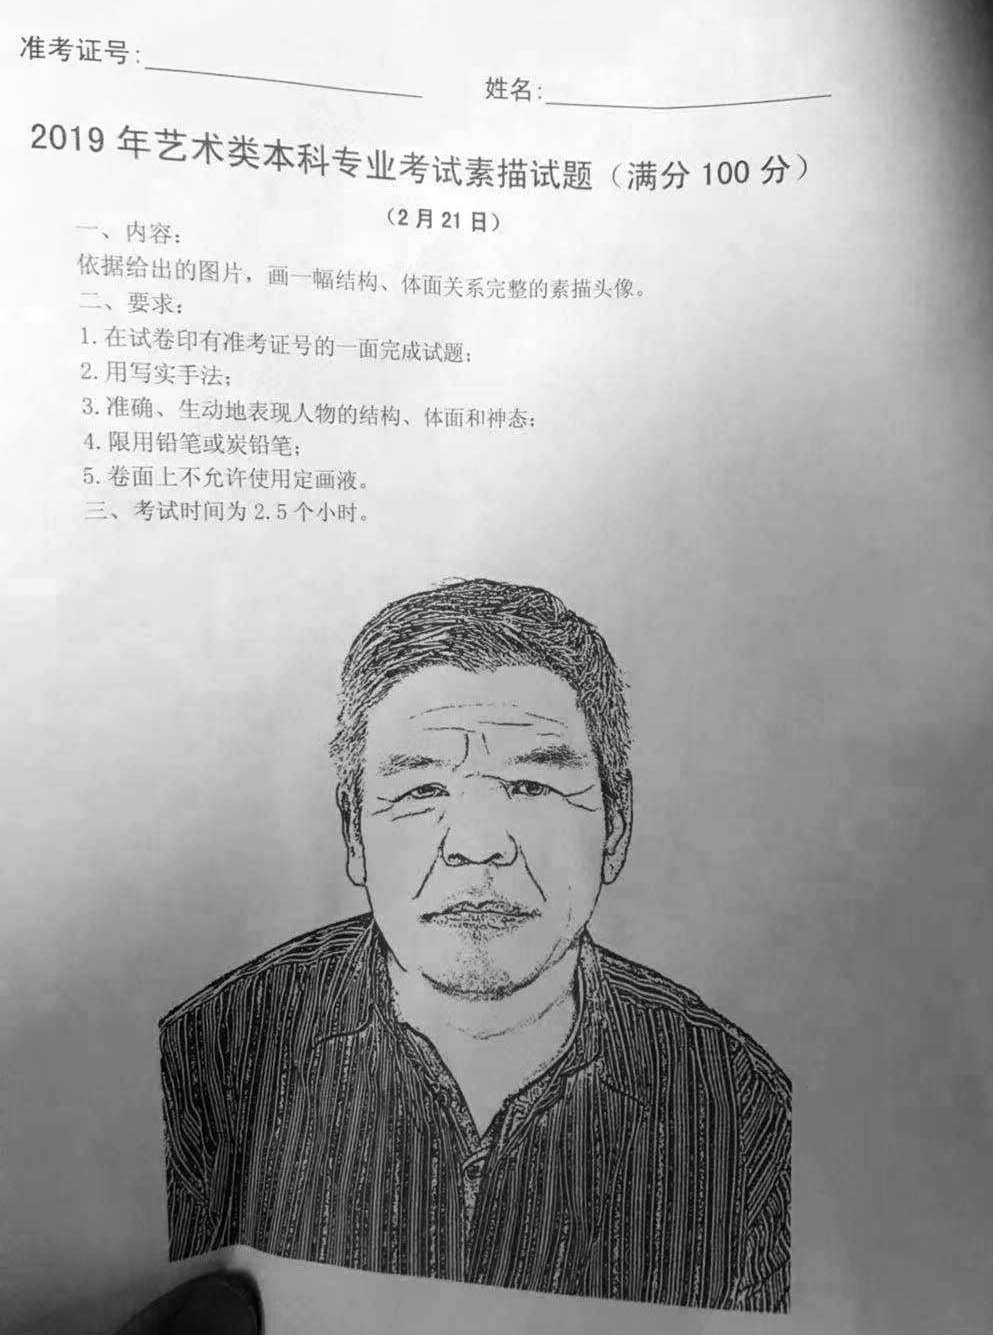 准考证号:
姓名:
2019 年艺术类本科专业考试素描试题（满分 100 分）
（2 月 21 日）
一、内容：
依据给出的图片，画一幅结构、体面关系完整的素描头像。
二、要求：
1. 在试卷印有准考证号的一面完成试题；
2. 用写实手法；
3. 准确、生动地表现人物的结构、体面和神态；
4. 限用铅笔或炭铅笔；
5. 卷面上不允许使用定画液。
三、考试时间为 2.5 个小时。